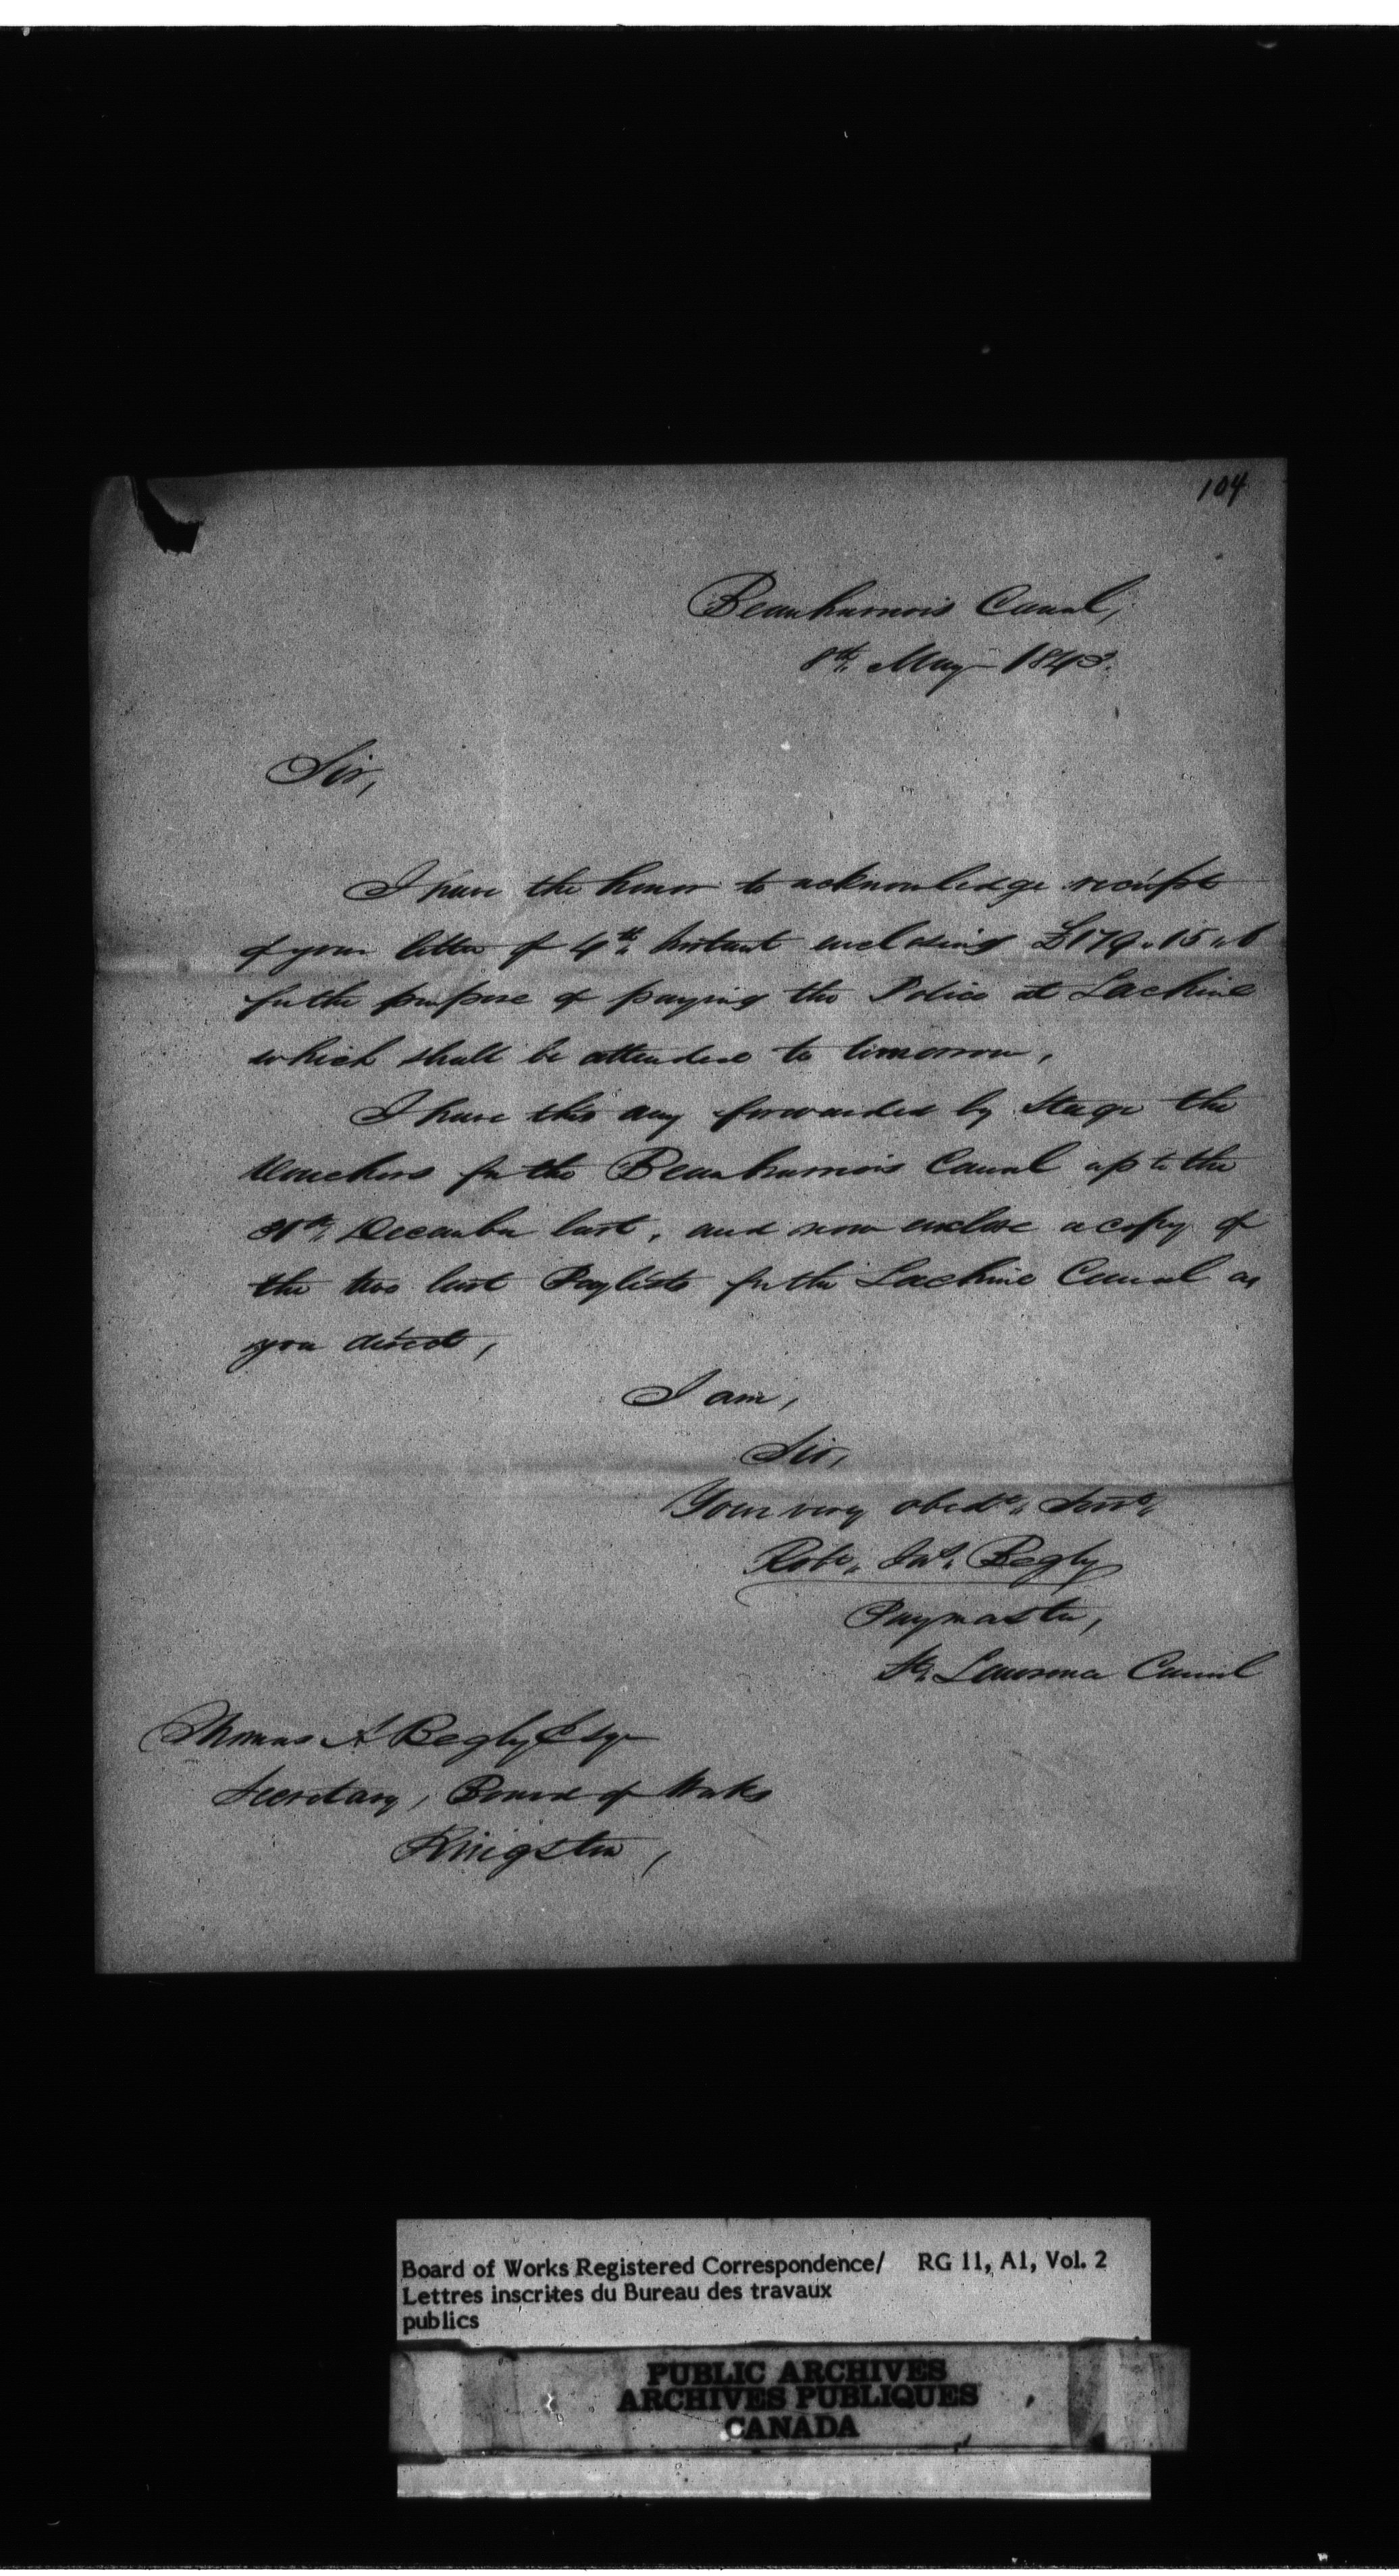 104
Beauharnois Canal,
8th, May 1843.
Sir,
I have the honor to acknowledge receipt
of your letter of 4th, Instant enclosing £179,,15,,6
for the purpose of paying the Police at Lachine
which shall be attended to tomorrow,
I have this day forwarded by Stage the
Vouchers for the Beauharnois Canal up to the
31st, December last, and now enclose a copy of
the two last Paylists for the Lachine Canal as
you direct,
I am,
Sir,
Your very obedt,, Servt,,
Robt,, Begly
Paymaster,
St, Lawrence Canal
Thomas A Begly Esqr
Secretary, Board of Works
Kingston,
Board of Works Registered Correspondence/ RG 11, A1, Vol. 2
Lettres inscrites du Bureau des travaux
publics
PUBLIC ARCHIVES
ARCHIVES PUBLIQUES
CANADA